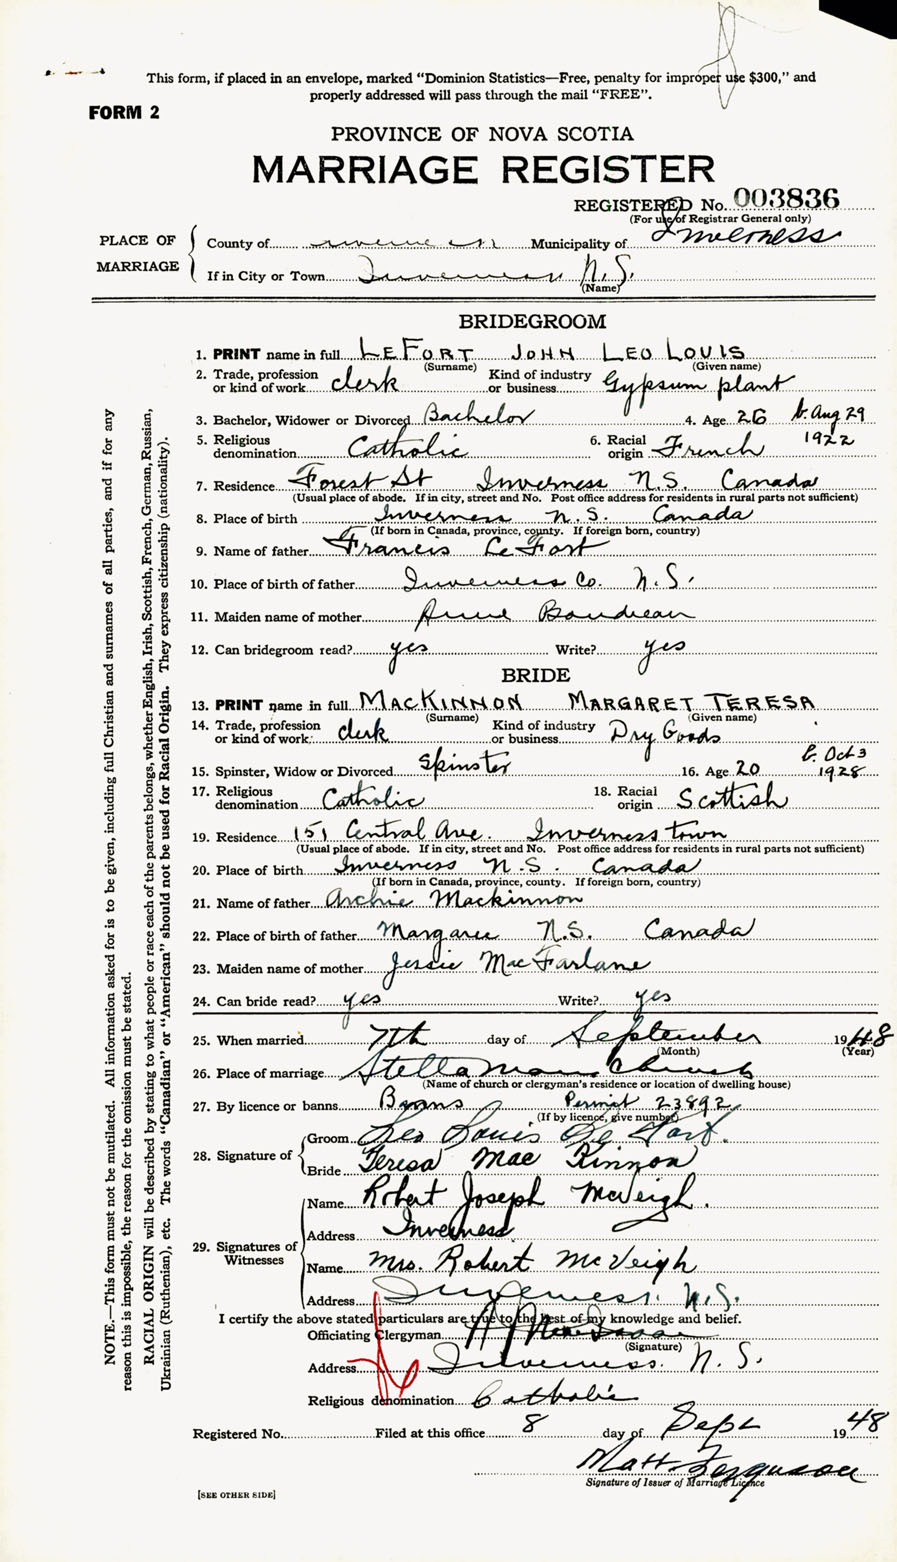 This form, if placed in an envelope, marked "Dominion Statistics—Free, penalty for improper use $300," and
properly addressed will pass through the mail "FREE".
FORM 2
PROVINCE OF NOVA SCOTIA
MARRIAGE REGISTER
REGISTERED No. 003836
(For use of Registrar General only)
PLACE OF MARRIAGE
County of Inverness Municipality of Inverness
If in City or Town Inverness N.S.
(Name)
BRIDEGROOM
1. PRINT name in full LEFORT JOHN LEO LOUIS
(Surname) (Given name)
2. Trade, profession or kind of work clerk Kind of industry or business Gypsum plant
3. Bachelor, Widower or Divorced Bachelor 4. Age 26 b. Aug 29 1922
5. Religious denomination Catholic 6. Racial origin French
7. Residence Forest St Inverness N.S. Canada
(Usual place of abode. If in city, street and No. Post office address for residents in rural parts not sufficient)
8. Place of birth Inverness N.S. Canada
(If born in Canada, province, county. If foreign born, country)
9. Name of father Francis LeFort
10. Place of birth of father Inverness Co. N.S.
11. Maiden name of mother Anne Boudreau
12. Can bridegroom read? yes Write? yes
BRIDE
13. PRINT name in full MACKINNON MARGARET TERESA
(Surname) (Given name)
14. Trade, profession or kind of work clerk Kind of industry or business Dry Goods
15. Spinster, Widow or Divorced Spinster 16. Age 20 b. Oct 3 1928
17. Religious denomination Catholic 18. Racial origin Scottish
19. Residence 151 Central Ave. Inverness town
(Usual place of abode. If in city, street and No. Post office address for residents in rural parts not sufficient)
20. Place of birth Inverness N.S. Canada
(If born in Canada, province, county. If foreign born, country)
21. Name of father Archie Mackinnon
22. Place of birth of father Margaree N.S. Canada
23. Maiden name of mother Jessie MacFarlane
24. Can bride read? yes Write? yes
25. When married 7th day of September 1948
(Month) (Year)
26. Place of marriage Stella Maris Church
(Name of church or clergyman's residence or location of dwelling house)
27. By licence or banns Banns Permit 23892
(If by licence, give number)
28. Signature of
Groom Leo Louis Le Fort.
Bride Teresa Mac Kinnon
29. Signatures of Witnesses
Name Robert Joseph McVeigh.
Address Inverness
Name Mrs. Robert McVeigh
Address Inverness. N.S.
I certify the above stated particulars are true to the best of my knowledge and belief.
Officiating Clergyman
(Signature)
Address Inverness. N.S.
Religious denomination Catholic
Registered No. Filed at this office 8 day of Sept 1948
Matt. Ferguson
Signature of Issuer of Marriage Licence
[SEE OTHER SIDE]
NOTE.—This form must not be mutilated. All information asked for is to be given, including full Christian and surnames of all parties, and if for any
reason this is impossible, the reason for the omission must be stated.
RACIAL ORIGIN will be described by stating to what people or race each of the parents belongs, whether English, Irish, Scottish, French, German, Russian,
Ukrainian (Ruthenian), etc. The words "Canadian" or "American" should not be used for Racial Origin. They express citizenship (nationality).